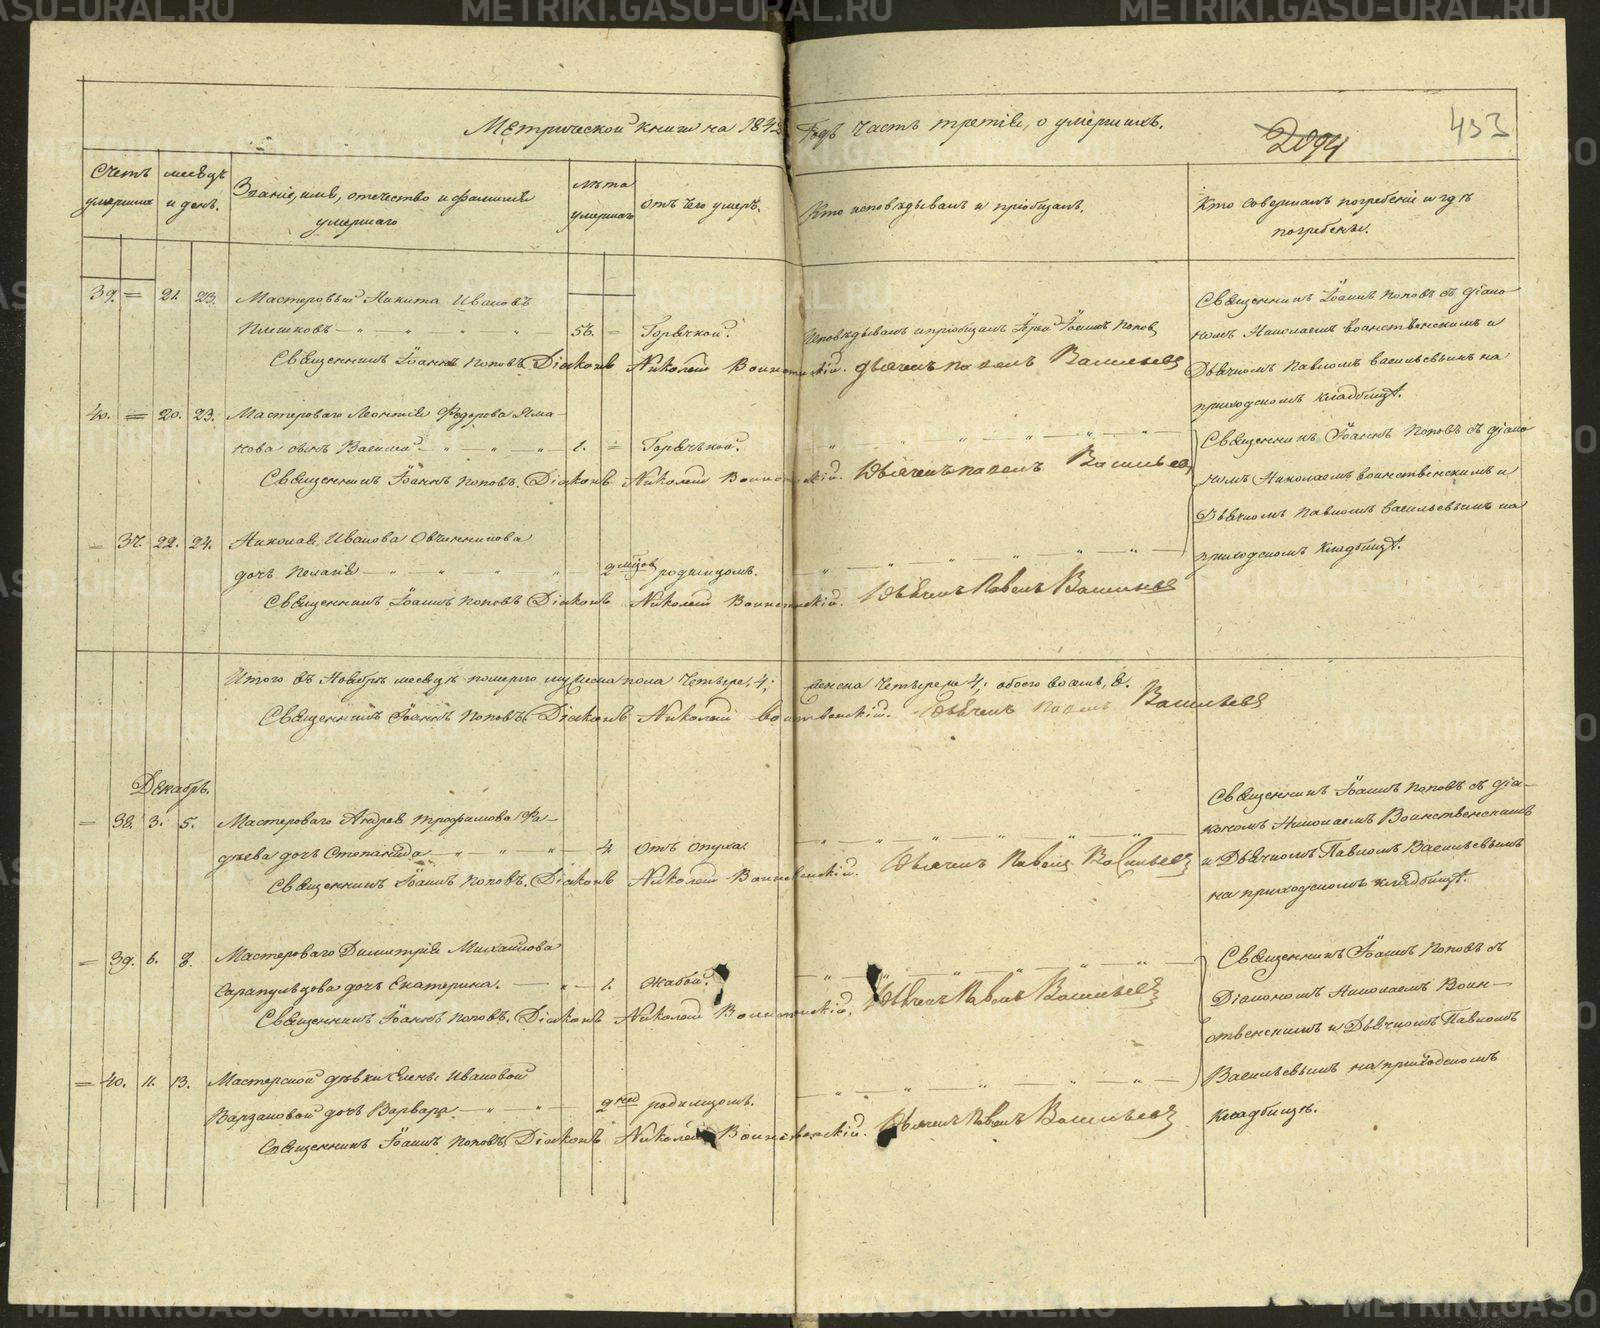 Метрической книги на 184 Годъ Часть третія, о умершихъ.
2094
453
Счетъ умершихъ
месяцъ и день.
Званіе, имя, отчество и фамилія умершаго
лѣта умершаго
отъ чего умеръ.
Кто исповѣдывалъ и пріобщалъ.
Кто совершалъ погребеніе и гдѣ погребены.
39. = 21. 23. Мастеровый Никита Ивановъ
Плешковъ 56. = Горячкой. Исповѣдывалъ и пріобщалъ Іерей Іоаннъ Поповъ
Священникъ Іоаннъ Поповъ. Діаконъ Николай Воинственскій. Дьячекъ Павелъ Васильевъ
Священникъ Іоаннъ Поповъ съ діако-
номъ Николаемъ Воинственскимъ и
Дьячкомъ Павломъ Васильевымъ на
приходскомъ кладбищѣ.
40. = 20. 23. Мастероваго Леонтія Федорова
нова сынъ Василій 1. = Горячкой.
Священникъ Іоаннъ Поповъ. Діаконъ Николай Воинственскій. Дьячекъ Павелъ Васильевъ
Священникъ Іоаннъ Поповъ съ діако-
номъ Николаемъ Воинственскимъ и
Дьячкомъ Павломъ Васильевымъ на
приходскомъ кладбищѣ.
= 37. 22. 24. Николая Иванова Овчинникова
дочь Пелагія 2 родимцомъ.
Священникъ Іоаннъ Поповъ Діаконъ Николай Воинственскій. Дьячекъ Павелъ Васильевъ
Итого въ Ноябрѣ месяцѣ померло мужеска пола Четыре, 4; женска Четыре 4; обоего восемь, 8.
Священникъ Іоаннъ Поповъ. Діаконъ Николай Воинственскій. Дьячекъ Павелъ Васильевъ
Декабрь.
= 38. 3. 5. Мастероваго Андрея Трофимова Фа-
дѣева дочь Степанида 4 отъ опуха.
Священникъ Іоаннъ Поповъ. Діаконъ Николай Воинственскій. Дьячекъ Павелъ Васильевъ
Священникъ Іоаннъ Поповъ съ діа-
кономъ Николаемъ Воинственскимъ
и Дьячкомъ Павломъ Васильевымъ
на приходскомъ кладбищѣ.
= 39. 6. 8. Мастероваго Димитрія Михайлова
Сарапульцева дочь Екатерина. 1. жабой.
Священникъ Іоаннъ Поповъ. Діаконъ Николай Воинственскій. Дьячекъ Павелъ Васильевъ
Священникъ Іоаннъ Поповъ съ
Діакономъ Николаемъ Воин-
ственскимъ и Дьячкомъ Павломъ
Васильевымъ на приходскомъ
кладбищѣ.
= 40. 11. 13. Мастерской дѣвки Елены Ивановой
Варзаковой дочь Варвара 2 родимцомъ.
Священникъ Іоаннъ Поповъ. Діаконъ Николай Воинственскій. Дьячекъ Павелъ Васильевъ
METRIKI.GASO-URAL.RU